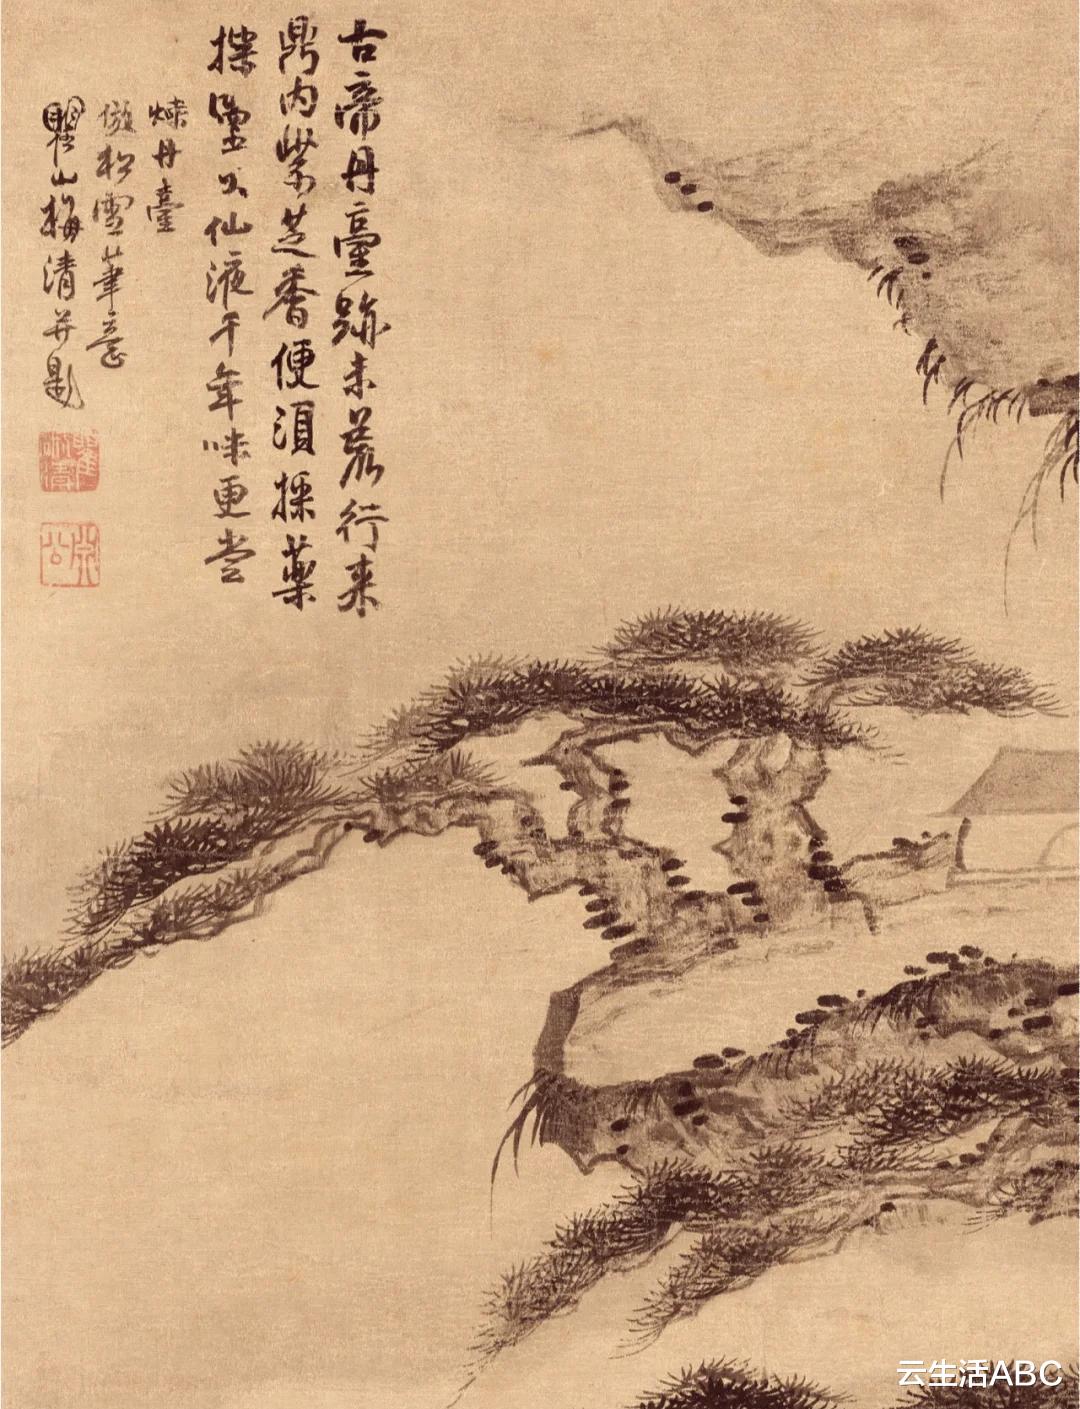 古帝丹臺跡未荒行来
鼎内紫芝香便須採藥
探靈仙液千年味更尝
煉丹臺
倣松雪筆意
瞿山梅清并題
淵公
云生活ABC